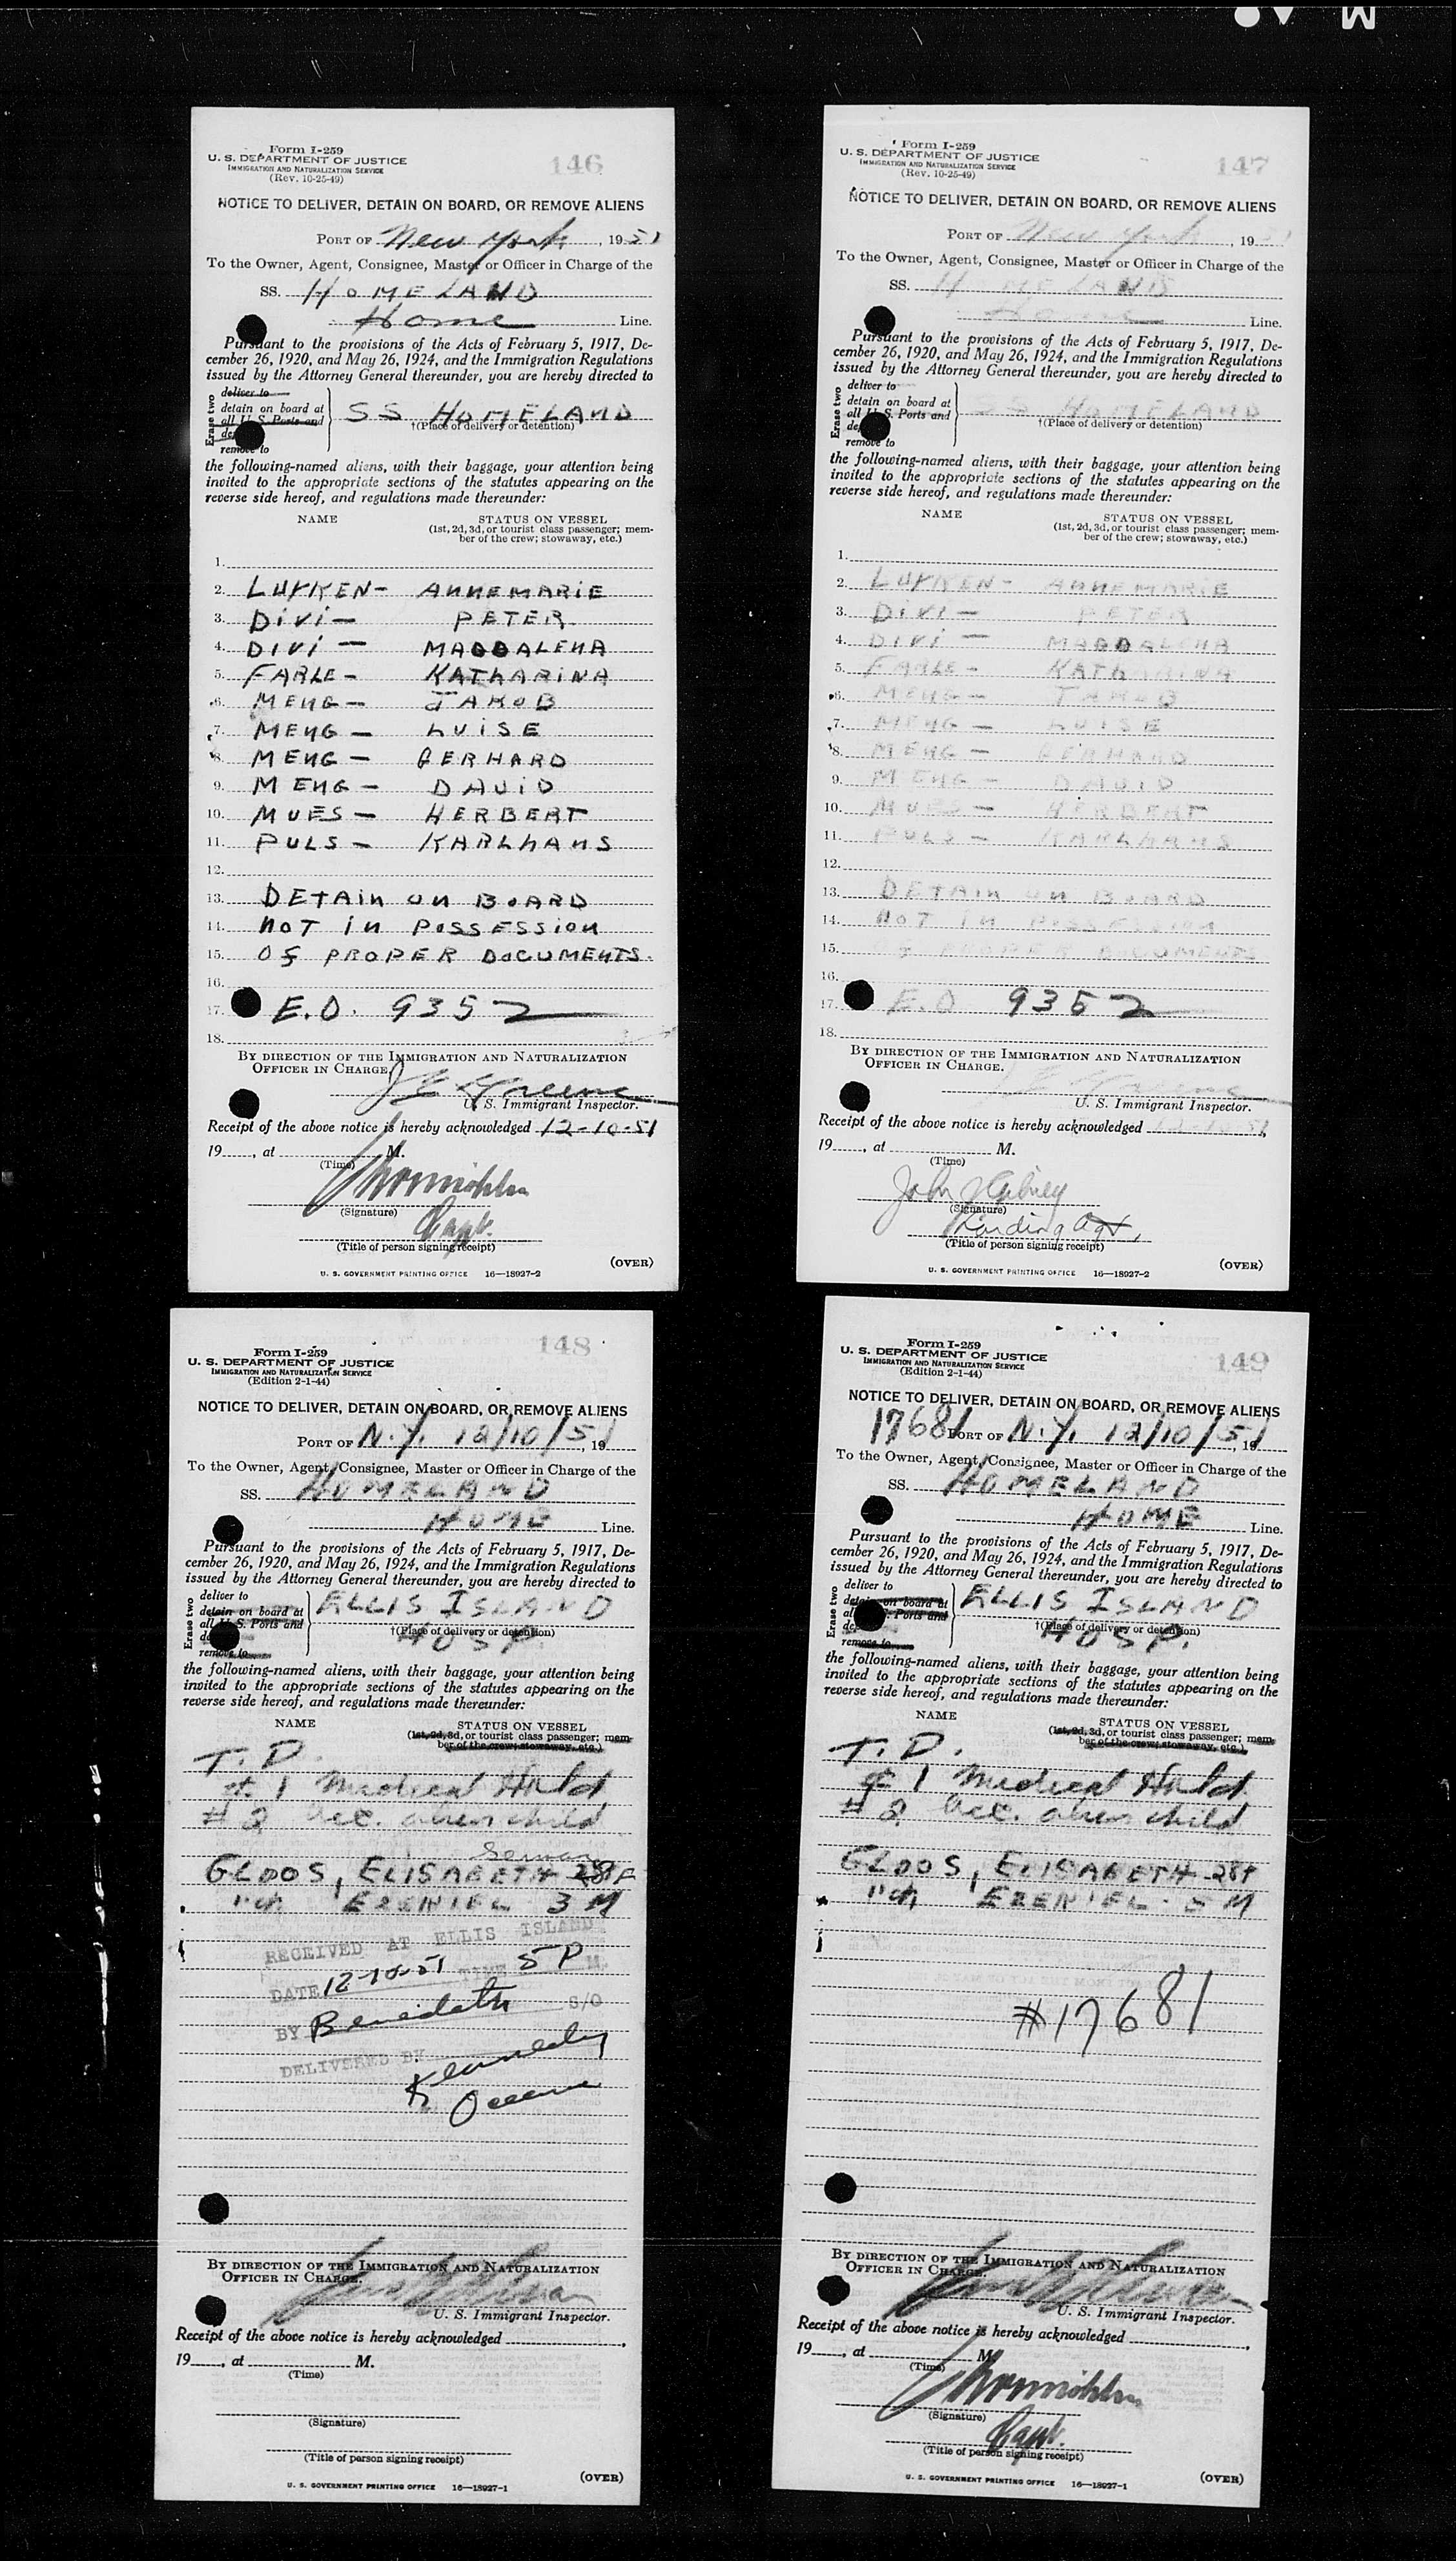 Form I-259
U. S. DEPARTMENT OF JUSTICE
IMMIGRATION AND NATURALIZATION SERVICE
(Rev. 10-25-49)
146
NOTICE TO DELIVER, DETAIN ON BOARD, OR REMOVE ALIENS
PORT OF New York, 1951
To the Owner, Agent, Consignee, Master or Officer in Charge of the
SS. HOMELAND
Home Line.
Pursuant to the provisions of the Acts of February 5, 1917, De-
cember 26, 1920, and May 26, 1924, and the Immigration Regulations
issued by the Attorney General thereunder, you are hereby directed to
Erase two
deliver to
detain on board at
all U. S. Ports and
remove to
SS HOMELAND
†(Place of delivery or detention)
the following-named aliens, with their baggage, your attention being
invited to the appropriate sections of the statutes appearing on the
reverse side hereof, and regulations made thereunder:
NAME STATUS ON VESSEL
(1st, 2d, 3d, or tourist class passenger; mem-
ber of the crew; stowaway, etc.)
1.
2. LUYKEN- ANNEMARIE
3. DIVI- PETER
4. DIVI - MAGDALENA
5. FARLE- KATHARINA
6. MENG- JAKOB
7. MENG - LUISE
8. MENG - GERHARD
9. MENG- DAVID
10. MUES- HERBERT
11. PULS- KARLHANS
12.
13. DETAIN ON BOARD
14. NOT IN POSSESSION
15. OF PROPER DOCUMENTS.
16.
17. E.O. 9352
18.
BY DIRECTION OF THE IMMIGRATION AND NATURALIZATION
OFFICER IN CHARGE.
J E Greene
U. S. Immigrant Inspector.
Receipt of the above notice is hereby acknowledged 12-10-51
19___, at ______ M.
(Time)
(Signature)
Capt.
(Title of person signing receipt)
(OVER)
U. S. GOVERNMENT PRINTING OFFICE 16—18927-2
Form I-259
U. S. DEPARTMENT OF JUSTICE
IMMIGRATION AND NATURALIZATION SERVICE
(Rev. 10-25-49)
147
NOTICE TO DELIVER, DETAIN ON BOARD, OR REMOVE ALIENS
PORT OF New York, 1951
To the Owner, Agent, Consignee, Master or Officer in Charge of the
SS. HOMELAND
Home Line.
Pursuant to the provisions of the Acts of February 5, 1917, De-
cember 26, 1920, and May 26, 1924, and the Immigration Regulations
issued by the Attorney General thereunder, you are hereby directed to
Erase two
deliver to
detain on board at
all U. S. Ports and
remove to
SS HOMELAND
†(Place of delivery or detention)
the following-named aliens, with their baggage, your attention being
invited to the appropriate sections of the statutes appearing on the
reverse side hereof, and regulations made thereunder:
NAME STATUS ON VESSEL
(1st, 2d, 3d, or tourist class passenger; mem-
ber of the crew; stowaway, etc.)
1.
2. LUYKEN- ANNEMARIE
3. DIVI- PETER
4. DIVI - MAGDALENA
5. FARLE- KATHARINA
6. MENG- JAKOB
7. MENG - LUISE
8. MENG - GERHARD
9. MENG- DAVID
10. MUES- HERBERT
11. PULS- KARLHANS
12.
13. DETAIN ON BOARD
14. NOT IN POSSESSION
15. OF PROPER DOCUMENTS
16.
17. E.O 9352
18.
BY DIRECTION OF THE IMMIGRATION AND NATURALIZATION
OFFICER IN CHARGE.
J E Greene
U. S. Immigrant Inspector.
Receipt of the above notice is hereby acknowledged 12-10-51,
19___, at ______ M.
(Time)
John
(Signature)
Landing Agt.
(Title of person signing receipt)
(OVER)
U. S. GOVERNMENT PRINTING OFFICE 16—18927-2
Form I-259
U. S. DEPARTMENT OF JUSTICE
IMMIGRATION AND NATURALIZATION SERVICE
(Edition 2-1-44)
148
NOTICE TO DELIVER, DETAIN ON BOARD, OR REMOVE ALIENS
PORT OF N.Y. 12/10/51, 19
To the Owner, Agent, Consignee, Master or Officer in Charge of the
SS. HOMELAND
HOME Line.
Pursuant to the provisions of the Acts of February 5, 1917, De-
cember 26, 1920, and May 26, 1924, and the Immigration Regulations
issued by the Attorney General thereunder, you are hereby directed to
Erase two
deliver to
detain on board at
all U. S. Ports and
remove to
ELLIS ISLAND
†(Place of delivery or detention)
HOSP.
the following-named aliens, with their baggage, your attention being
invited to the appropriate sections of the statutes appearing on the
reverse side hereof, and regulations made thereunder:
NAME STATUS ON VESSEL
(1st, 2d, 3d, or tourist class passenger; mem-
ber of the crew; stowaway, etc.)
T. D.
# 1 Medical Hold
# 2 acc. alien child
GLOOS, ELISABETH 28F
" ch EZEKIEL 3 M
RECEIVED AT ELLIS ISLAND
DATE 12-10-51 TIME 5 P M.
BY Benedetto S/O
DELIVERED BY
Kennedy
BY DIRECTION OF THE IMMIGRATION AND NATURALIZATION
OFFICER IN CHARGE.
U. S. Immigrant Inspector.
Receipt of the above notice is hereby acknowledged ______,
19___, at ______ M.
(Time)
(Signature)
(Title of person signing receipt)
(OVER)
U. S. GOVERNMENT PRINTING OFFICE 16—18927-1
Form I-259
U. S. DEPARTMENT OF JUSTICE
IMMIGRATION AND NATURALIZATION SERVICE
(Edition 2-1-44)
149
NOTICE TO DELIVER, DETAIN ON BOARD, OR REMOVE ALIENS
17681 PORT OF N.Y. 12/10/51, 19
To the Owner, Agent, Consignee, Master or Officer in Charge of the
SS. HOMELAND
HOME Line.
Pursuant to the provisions of the Acts of February 5, 1917, De-
cember 26, 1920, and May 26, 1924, and the Immigration Regulations
issued by the Attorney General thereunder, you are hereby directed to
Erase two
deliver to
detain on board at
all U. S. Ports and
remove to
ELLIS ISLAND
†(Place of delivery or detention)
HOSP.
the following-named aliens, with their baggage, your attention being
invited to the appropriate sections of the statutes appearing on the
reverse side hereof, and regulations made thereunder:
NAME STATUS ON VESSEL
(1st, 2d, 3d, or tourist class passenger; mem-
ber of the crew; stowaway, etc.)
T. D.
# 1 Medical Hold
# 2 acc. alien child
GLOOS, ELISABETH 28F
" ch EZEKIEL 3 M
#17681
BY DIRECTION OF THE IMMIGRATION AND NATURALIZATION
OFFICER IN CHARGE.
U. S. Immigrant Inspector.
Receipt of the above notice is hereby acknowledged ______,
19___, at ______ M.
(Time)
(Signature)
Capt.
(Title of person signing receipt)
(OVER)
U. S. GOVERNMENT PRINTING OFFICE 16—18927-1